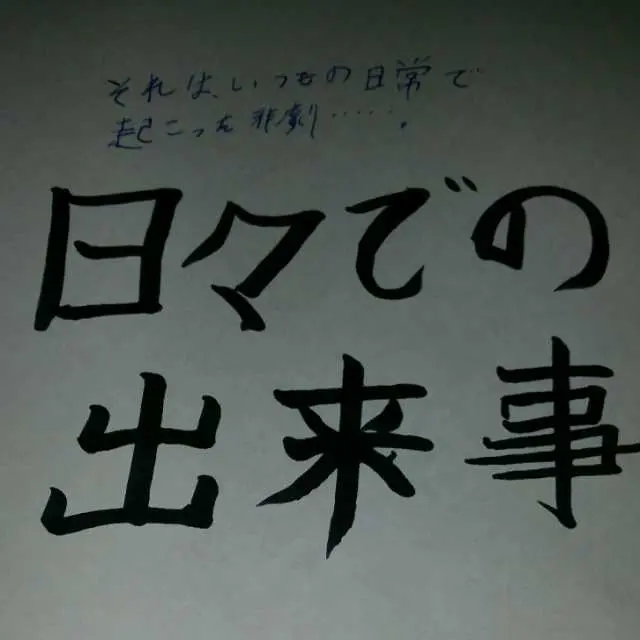 それは、いつもの日常で
起こった悲劇‥‥‥。
日々での
出来事